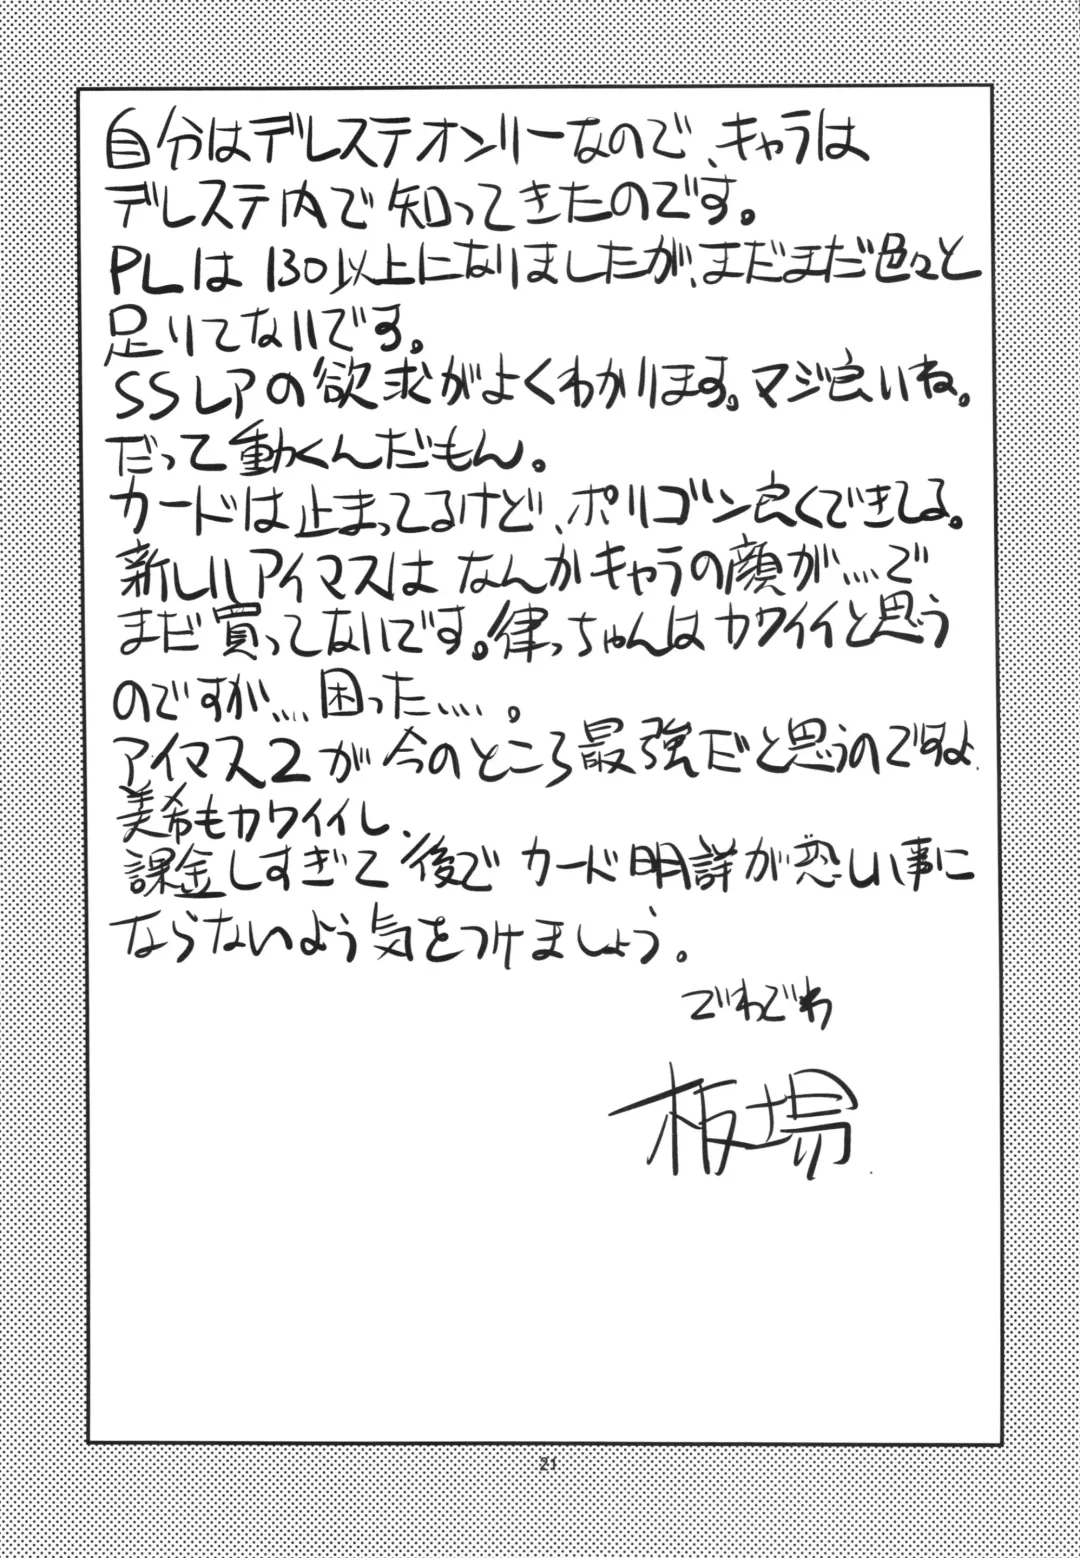 自分はデレステオンリーなので、キャラは
デレステ内で知ってきたのです。
PLは130以上になりましたが、まだまだ色々と
足りてないです。
SSレアの欲求がよくわかります。マジ良いね。
だって動くんだもん。
カードは止まってるけど、ポリゴン良くできてる。
新しいアイマスはなんかキャラの顔が...で
まだ買ってないです。律っちゃんはカワイイと思う
のですが...困った....。
アイマス2が今のところ最強だと思うのですよ
美希もカワイイし、
課金しすぎて後でカード明詳が恐しい事に
ならないよう気をつけましょう。
でわでわ
板場
21